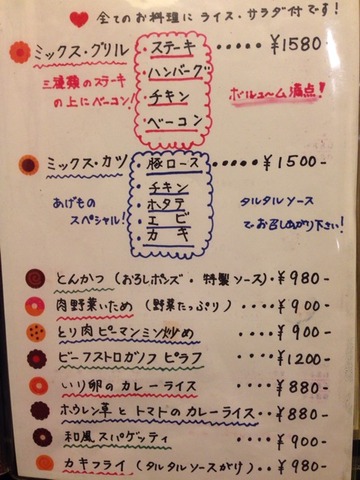 ♥ 全てのお料理に ライス・サラダ付です!
ミックス・グリル ・ステーキ ・・・・・ ¥1580-
・ハンバーグ
三種類のステーキ
の上にベーコン! ・チキン ボリューム満点!
・ベーコン
ミックス・カツ 豚ロース ・・・・・ ¥1500-
チキン
あげもの ホタテ タルタルソース
スペシャル! エビ でお召しあがり下さい!
カキ
とんかつ (おろしポンズ・特製ソース)・¥980-
肉野菜いため (野菜たっぷり)・・・¥900-
とり肉ピーマンミン炒め ・・・¥900-
ビーフストロガノフ ピラフ ・・・¥1200-
いり卵のカレーライス ・・・¥880-
ホウレン草とトマトのカレーライス・・¥880-
和風スパゲッティ ・・・¥900-
カキフライ (タルタルソースがけ)・・¥980-